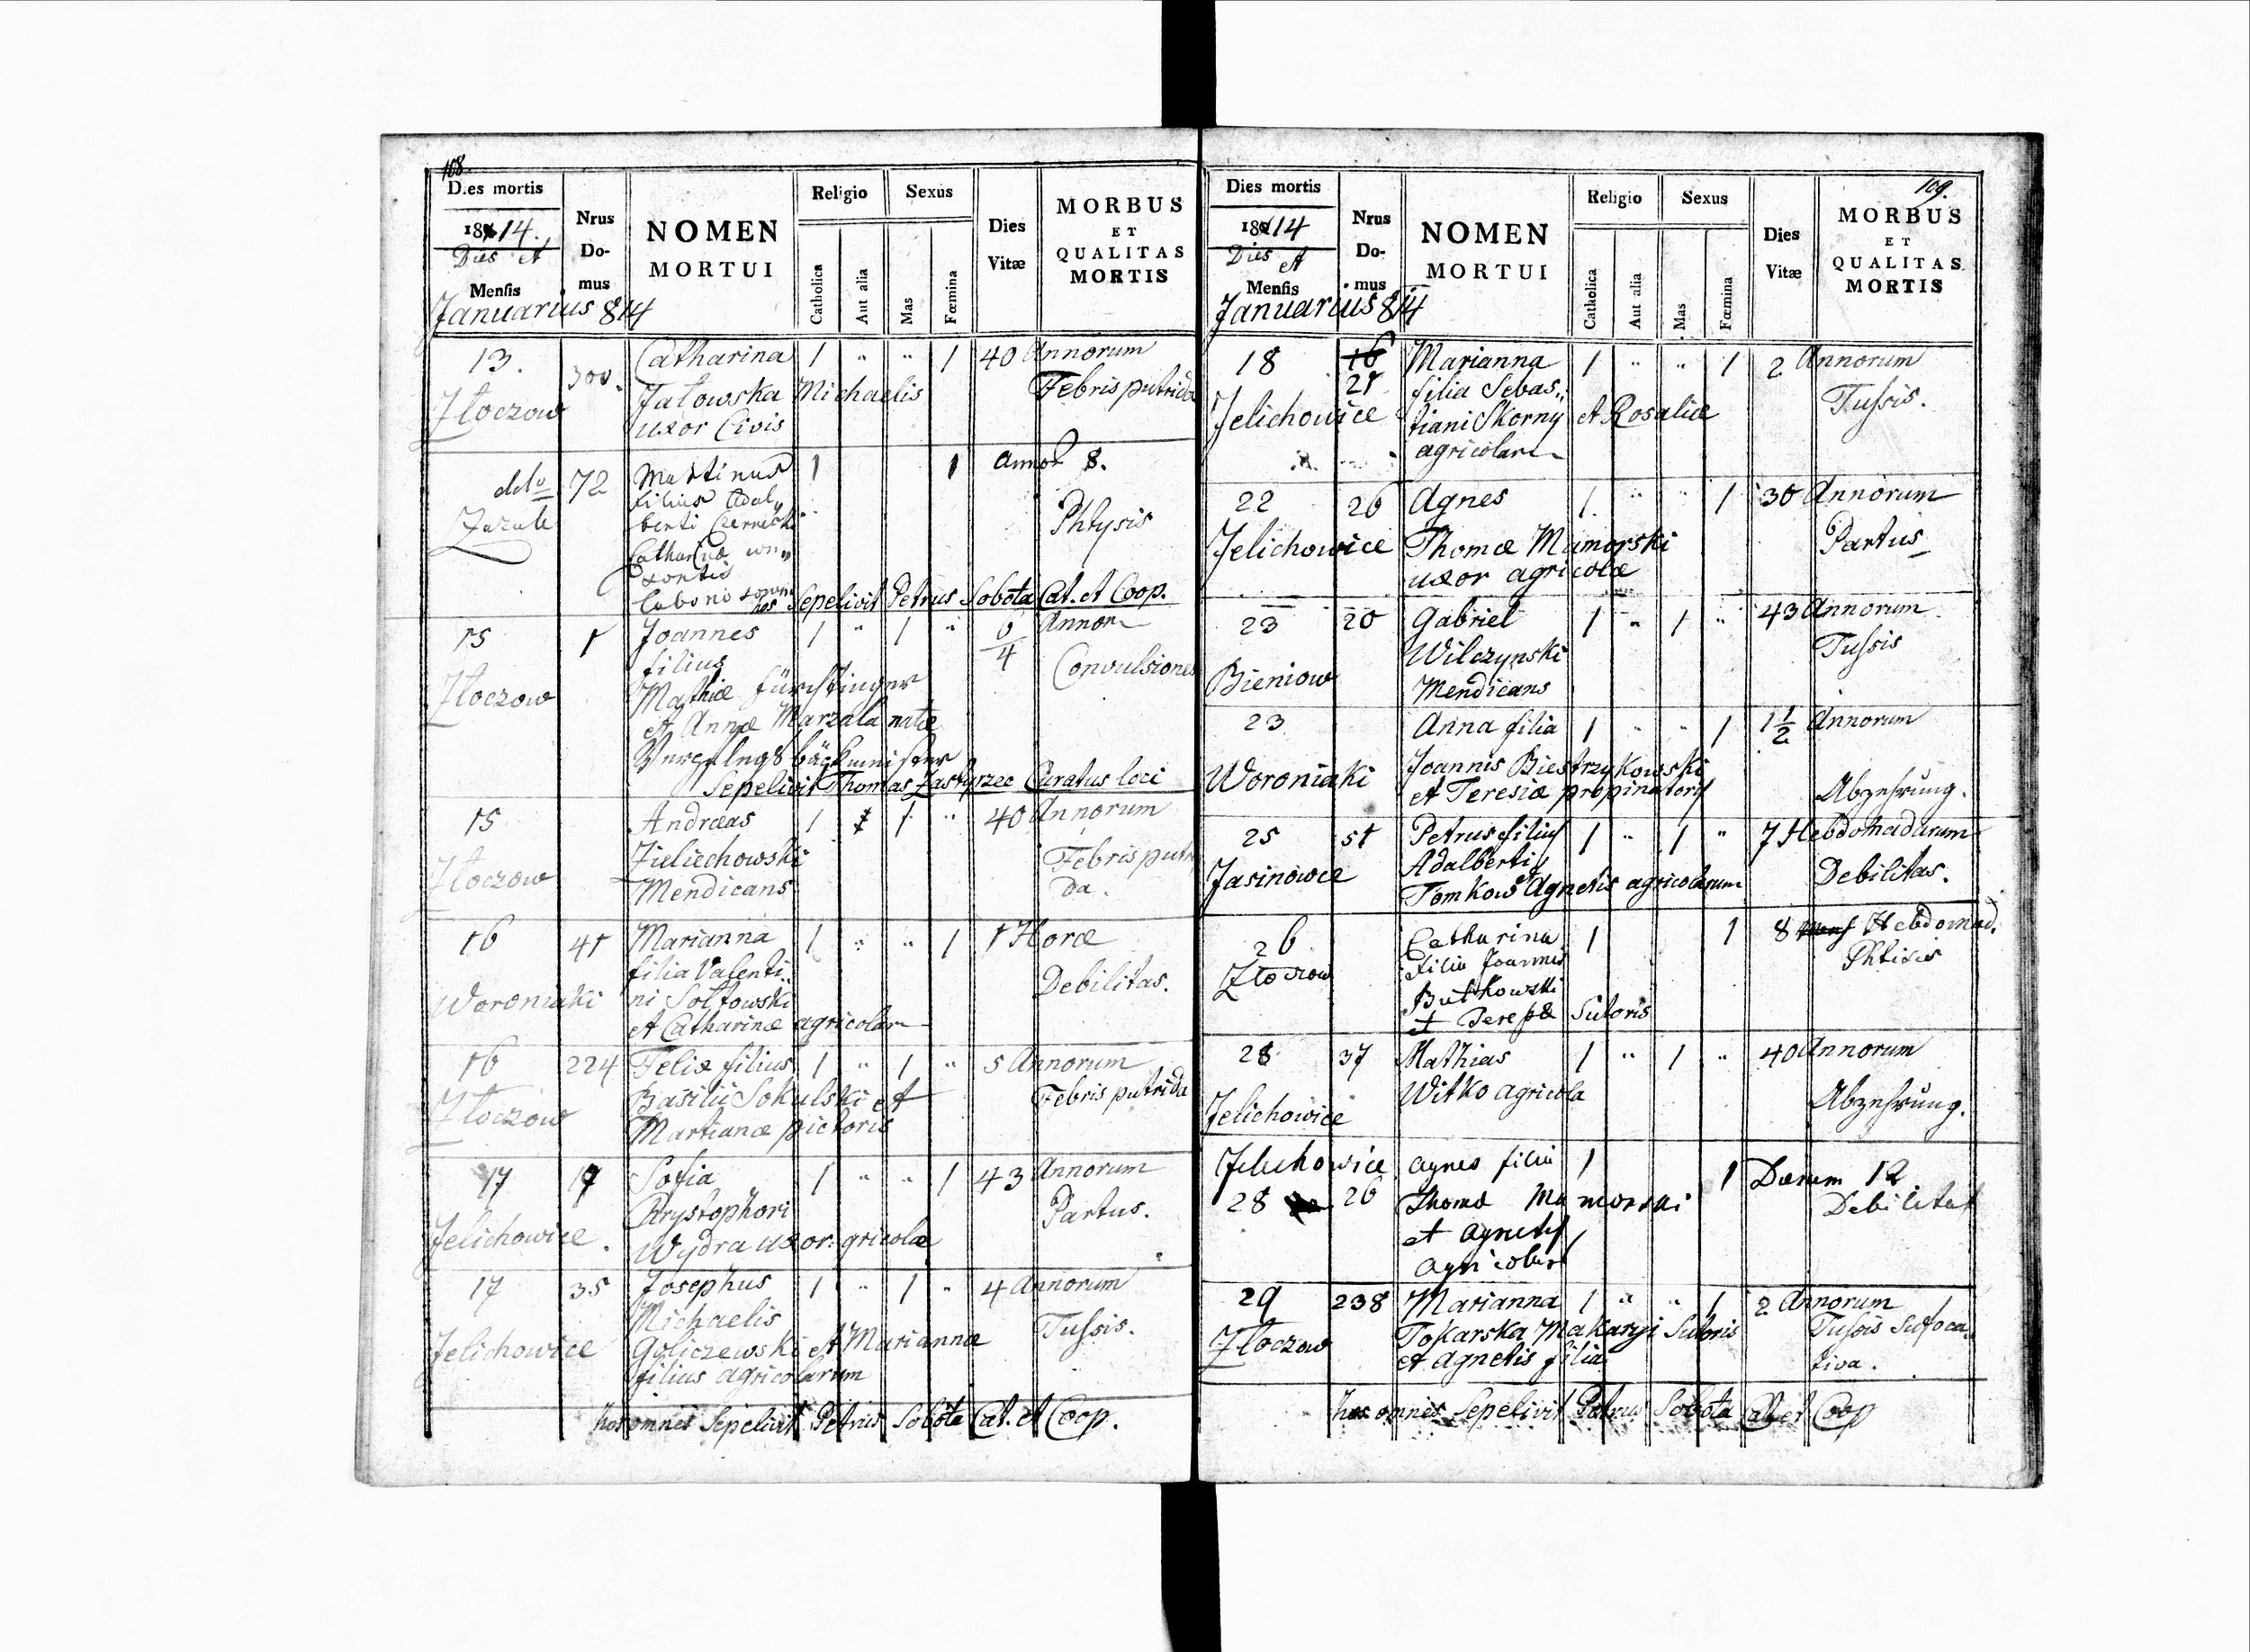 108.
Dies mortis
1814.
Dies et
Mensis
Januarius 814
Nrus
Do-
mus
NOMEN
MORTUI
Religio
Catholica
Aut alia
Sexus
Mas
Fœmina
Dies
Vitæ
MORBUS
ET
QUALITAS
MORTIS
13. 300. Catharina 1 " " 1 40 Annorum
Złoczow Jałowska Michaelis Febris putrida
uxor Civis
ddto 72 Martinus 1 1 Annor 8.
Zazule filius Adal
berti Czernecki Phtysis
Catharinæ con
sortis
hos Sepelivit Petrus Sobota Cat. et Coop.
15 1 Joannes 1 " 1 " Annor
filius 4
Złoczow Mathiæ Fürchtinger Convulsiones
et Annæ Marzala natæ
bäckermeister
Sepelivit Thomas Zastyrzec Curatus loci
15 Andræas 1 1 " 40 Annorum
Złoczow Zieliechowski Febris putri
Mendicans da.
16 41 Marianna 1 " " 1 1 Horæ
filia Valenti
Woroniaki ni Sołtowski Debilitas.
et Catharinæ agricolar
16 224 Felix filius 1 " 1 " 5 Annorum
Złoczow Basilii Sokulski et Febris putrida
Martianæ pictoris
17 17 Sofia 1 " " 1 43 Annorum
Krystophori Partus.
Jelichowice. Wydra uxor gricolæ
17 35 Josephus 1 " 1 " 4 Annorum
Michaelis Tussis.
Jelichowice Goliczewski et Mariannæ
filius agricolarum
hos omnes Sepelivit Petrus Sobota Cat. et Coop.
109.
Dies mortis
1814
Dies et
Mensis
Januarius 814
Nrus
Do-
mus
NOMEN
MORTUI
Religio
Catholica
Aut alia
Sexus
Mas
Fœmina
Dies
Vitæ
MORBUS
ET
QUALITAS
MORTIS
18 16 Marianna 1 " " 1 2 Annorum
21 filia Sebas Tussis.
Jelichowice tiani Skorny et Rosaliæ
agricolar
22 26 Agnes 1 " " 1 30 Annorum
Jelichowice Thomæ Mamorski Partus
uxor agricolæ
23 20 Gabriel 1 " 1 " 43 Annorum
Wilczynski Tussis
Bieniow Mendicans
23 Anna filia 1 " " 1 1 1/2 Annorum
Woroniaki Joannis Biestrzykowski
et Teresiæ propinatory Abzehrung.
25 51 Petrus filius 1 " 1 " 7 Hebdomadarum
Jasinowce Adalberti Debilitas.
Tomkow et Agnetis agricolarum
26 Catharina 1 1 8 Hebdomad.
Złoczow Filia Joannis Phtisis
Butkowski
et Sutoris
28 37 Mathias 1 " 1 " 40 Annorum
Witko agricola
Jelichowice Abzehrung.
Jelichowice Agnes filia 1 1 Dierum 12
28 26 Thomæ Mamorski Debilitas
et Agnetis
Agricolar
29 238 Marianna 1 " " 1 2 Annorum
Złoczow Tokarska Makaryi Sutoris Tussis Sufoca
et Agnetis filia tiva.
hos omnes Sepelivit Petrus Sobota Cat et Coop